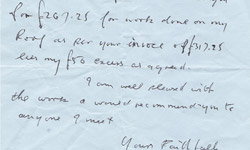 you
for £267.25 for work done on my
Roof as per your invoice of £317.25
less my £50 excess as agreed.
I am well pleased with
the work & would recommend you to
anyone I meet
Yours Faithfull